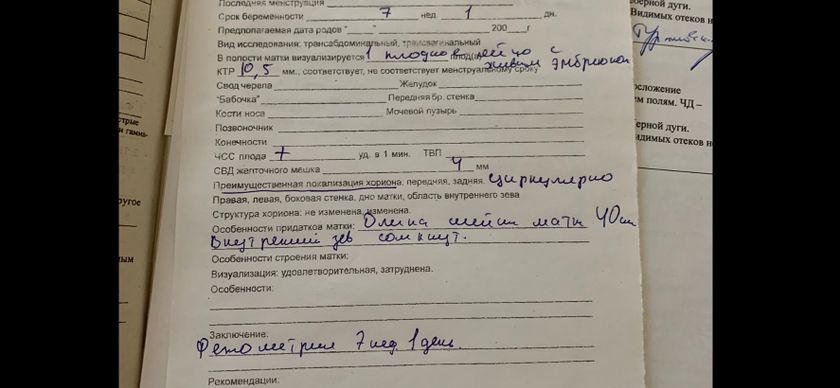 Последняя менструация
Срок беременности 7 нед. 1 дн.
Предполагаемая дата родов "____" ____ 200__г
Вид исследования: трансабдоминальный, трансвагинальный
В полости матки визуализируется 1 плодное яйцо с живым эмбрионом
КТР 10,5 мм., соответствует, не соответствует менструальному сроку
Свод черепа Желудок
"Бабочка" Передняя бр. стенка
Кости носа Мочевой пузырь
Позвоночник
Конечности
ЧСС плода + уд. в 1 мин. ТВП
СВД желточного мешка 4 мм
Преимущественная локализация хориона: передняя, задняя, циркулярно
Правая, левая, боковая стенка, дно матки, область внутреннего зева
Структура хориона: не изменена, изменена.
Особенности придатков матки: Длина шейки матки 40 мм
Внутренний зев сомкнут.
Особенности строения матки:
Визуализация: удовлетворительная, затруднена.
Особенности:
Заключение:
Фетометрия 7 нед 1 день.
Рекомендации:
ерной дуги.
Видимых отеков н
м полям. ЧД –
ерной дуги.
идимых отеков н
стрые
ругое
ным